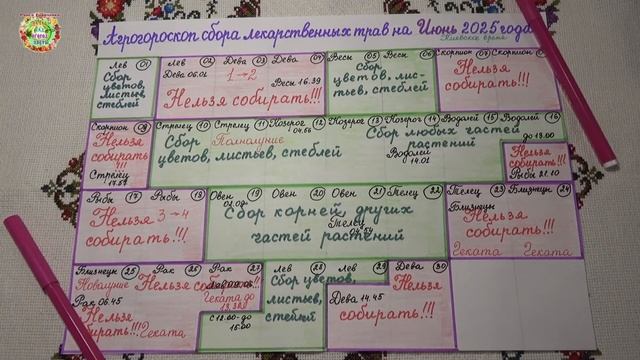 Агрогороскоп сбора лекарственных трав на Июнь 2025 года
Киевское время
Лев 01
Сбор
цветов,
листьев,
стеблей
Лев 02 Дева 03 Дева 04
Дева 06.01 1→2 Весы 16.39
Нельзя собирать!!!
Весы 05 Весы 06
Сбор
цветов, лис-
тьев, стеблей
Скорпион 07 Скорпион
Нельзя
собирать!!!
Скорпион 09
Нельзя
собирать
!!!
Стрелец
Стрелец 10 Стрелец 11 Козерог 12 Козерог 13 Козерог 14 Водолей 15 Водолей 16
Сбор Полнолуние
цветов, листьев, стеблей
Сбор любых частей
растений
Водолей
14.01
до 13.00
Нельзя
собирать!!!
Рыбы 21.10
Рыбы 17 Рыбы 18
Нельзя 3→4
собирать!!!
Овен 19 Овен 20 Овен 21 Телец 22
Сбор корней, других
Телец
частей растений
Телец 23 Близнецы 24
Близнецы
Нельзя
собирать!!!
Геката Геката
Близнецы 25 Рак 26 Рак 27
Новолуние Нельзя собирать!!!
Рак 06.45
Нельзя
собирать!!! Геката
Геката до
с 13.00 до
15.00
Лев 28 Лев 29
Сбор цветов,
листьев,
стеблей
Дева 14.45
Дева 30
Нельзя
собирать!!!